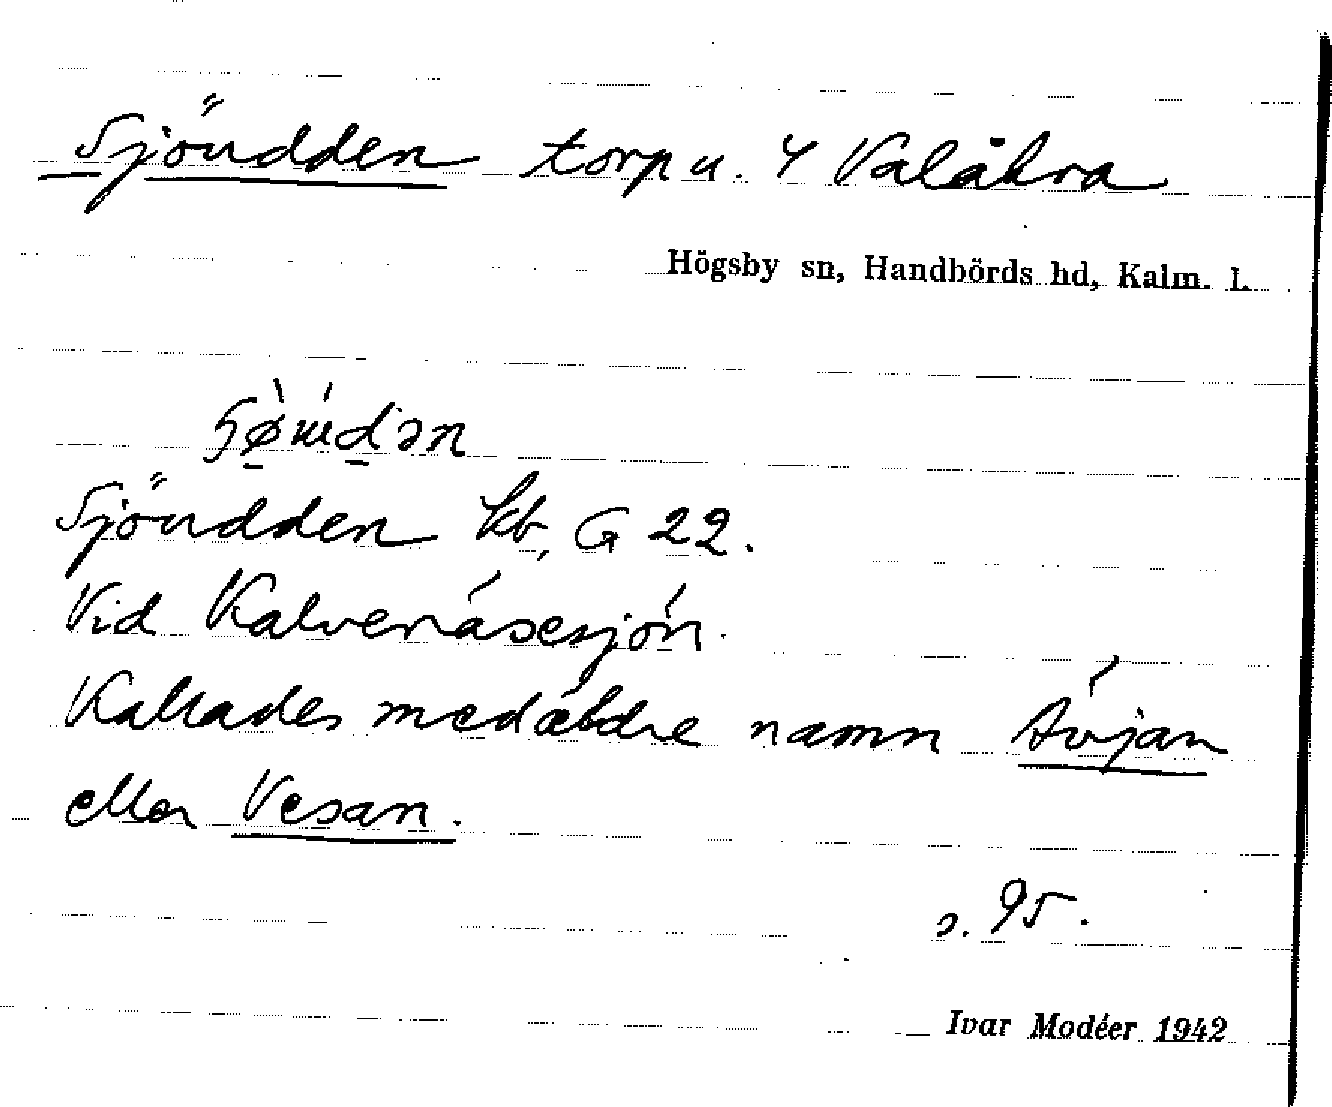 Sjöudden torp u. 4 Valåkra
Högsby sn, Handbörds hd, Kalm. l.
Sjöudden kb, G 22.
Vid Kalvenässjön.
Kallades med äldre namn
eller Vesan.
s. 95.
Ivar Modéer 1942